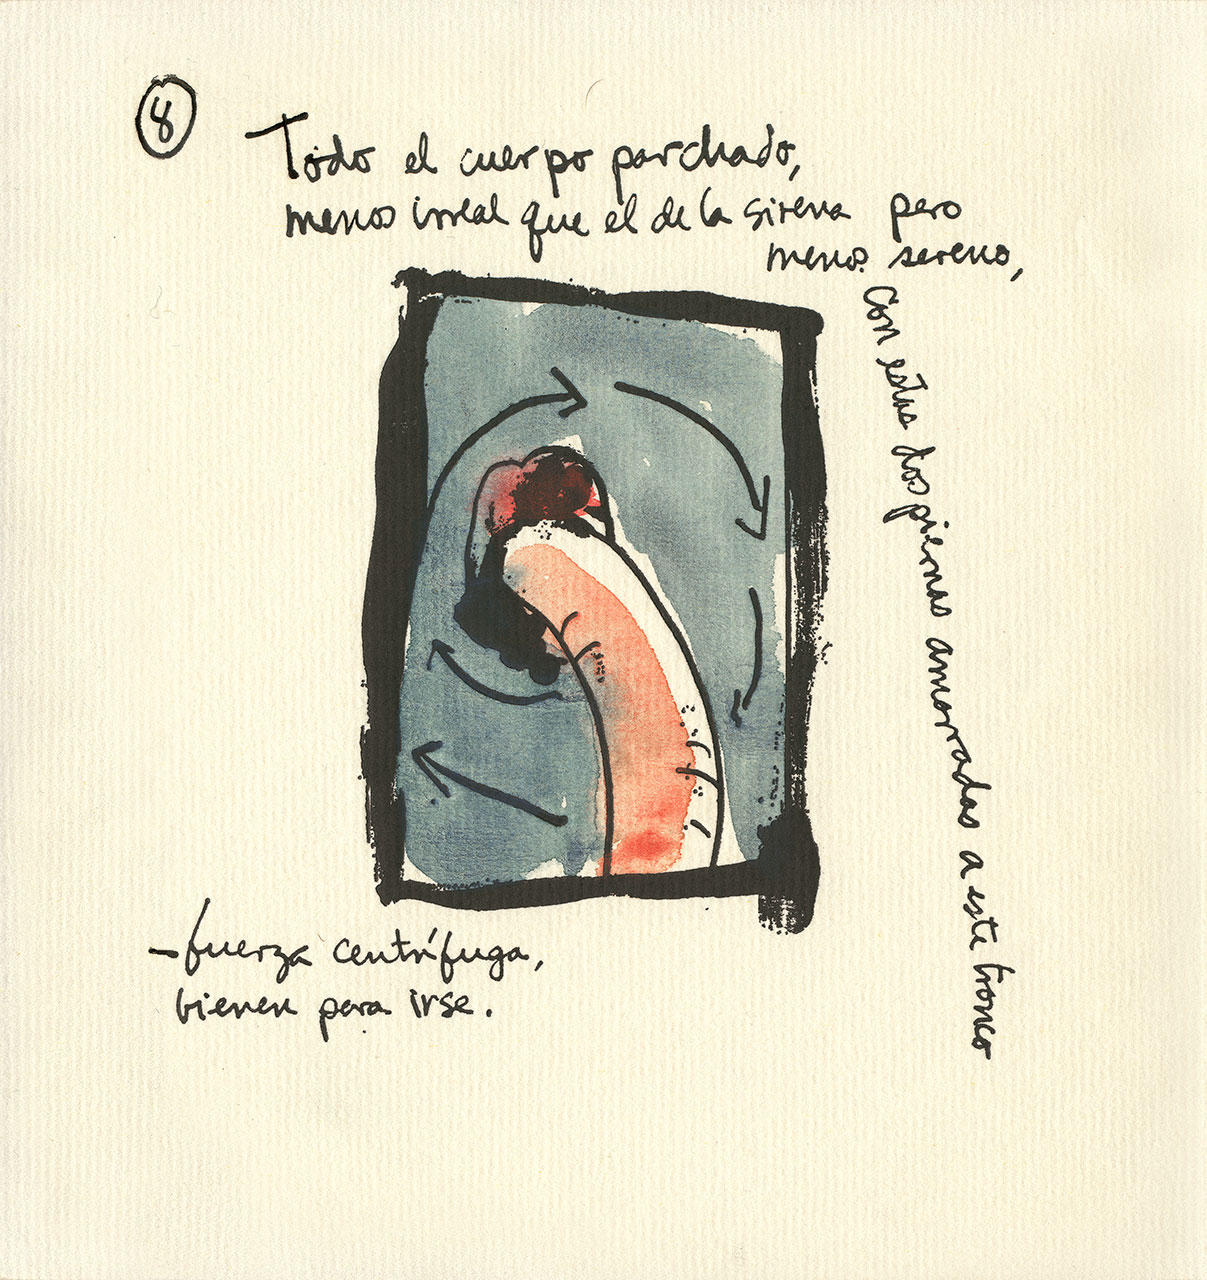 8
Todo el cuerpo parchado,
menos irreal que el de la sirena pero
menos sereno,
con estas dos piernas amarradas a este tronco
– fuerza centrífuga,
vienen para irse.